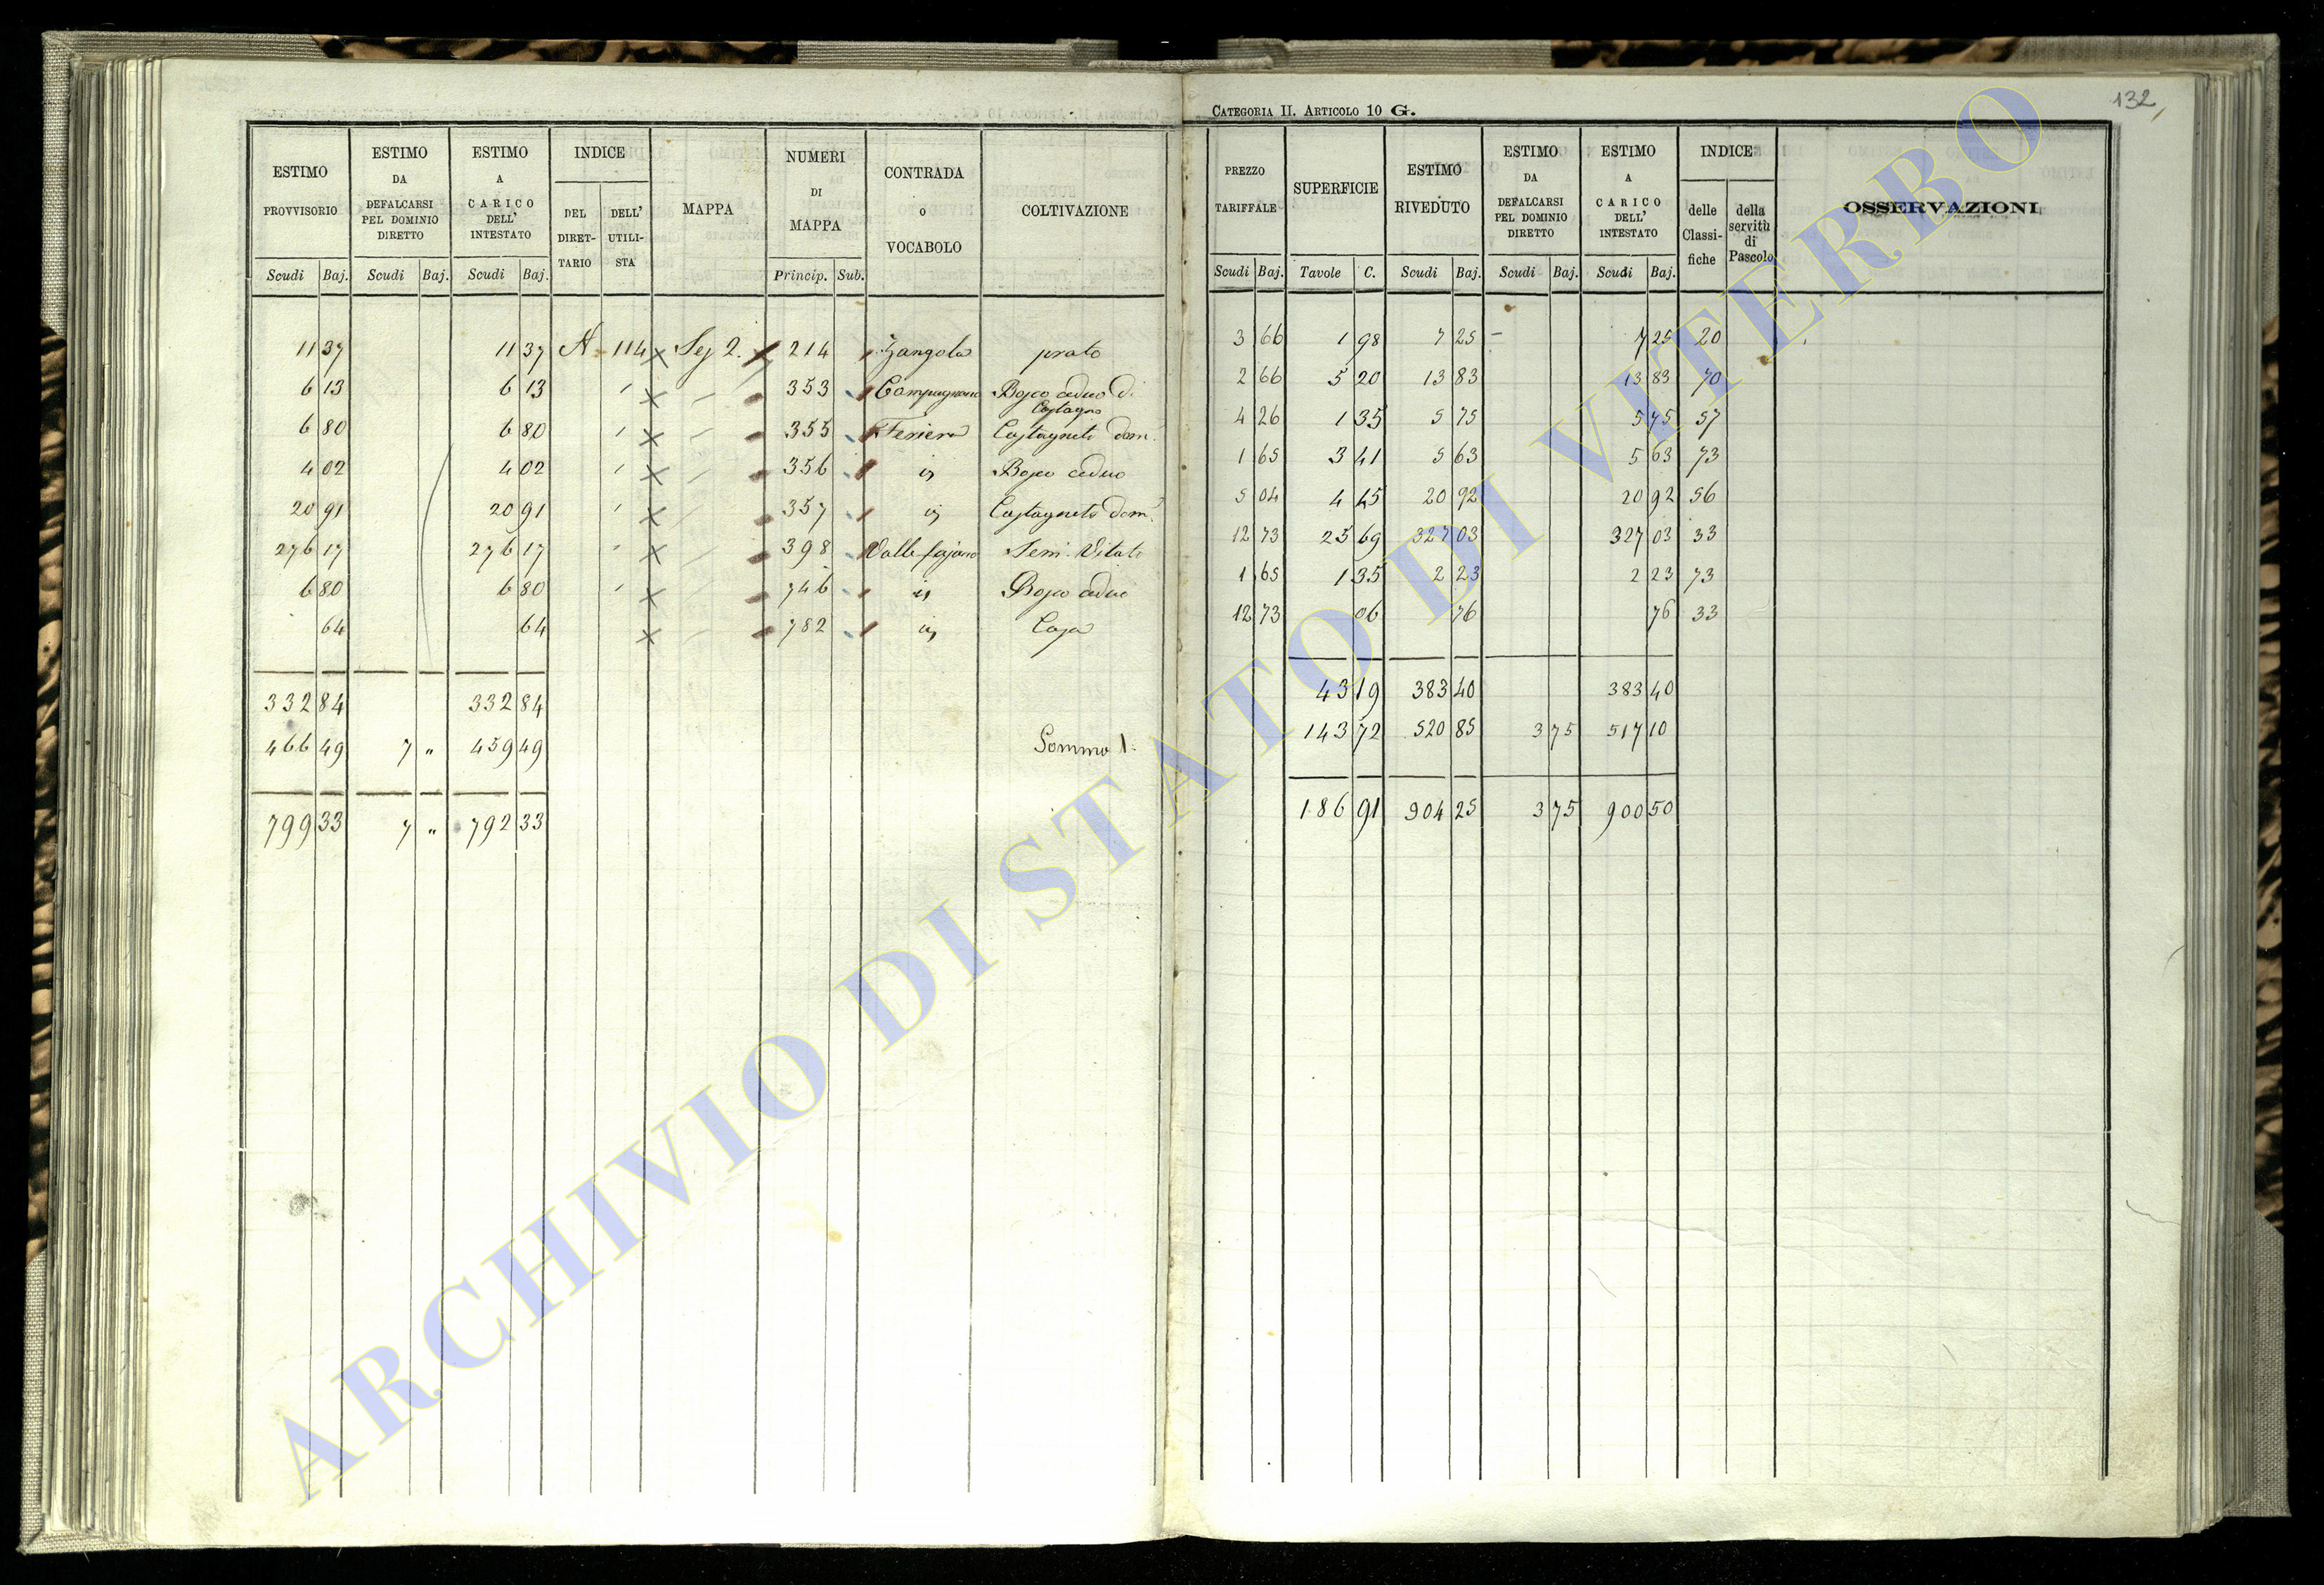 132
CATEGORIA II. ARTICOLO 10 G.
ESTIMO PROVVISORIO
ESTIMO DA DEFALCARSI PEL DOMINIO DIRETTO
ESTIMO A CARICO DELL' INTESTATO
INDICE
DEL DIRET-TARIO
DELL' UTILI-STA
MAPPA
NUMERI DI MAPPA
CONTRADA o VOCABOLO
COLTIVAZIONE
Scudi Baj. Scudi Baj. Scudi Baj. Princip. Sub.
11 37 11 37 A - 114 Sez 2. 214 Zangola prato
6 13 6 13 353 Campagnano Bosco ceduo di Castagno
6 80 6 80 355 Castagneto dom.
4 02 4 02 356 id Bosco ceduo
20 91 20 91 357 id Castagneto dom.
276 17 276 17 398 Valle fajano Sem. Vitato
6 80 6 80 746 id Bosco ceduo
64 64 782 id Casa
332 84 332 84
466 49 7 " 459 49 Somma 1a
799 33 7 " 792 33
PREZZO TARIFFALE
SUPERFICIE
ESTIMO RIVEDUTO
ESTIMO DA DEFALCARSI PEL DOMINIO DIRETTO
ESTIMO A CARICO DELL' INTESTATO
INDICE
delle Classi-fiche
della servitù di Pascolo
OSSERVAZIONI
Scudi Baj. Tavole C. Scudi Baj. Scudi Baj. Scudi Baj.
3 66 1 98 7 25 - 7 25 20
2 66 5 20 13 83 13 83 70
4 26 1 35 5 75 5 75 57
1 65 3 41 5 63 5 63 73
5 04 4 15 20 92 20 92 56
12 73 25 69 327 03 327 03 33
1 65 1 35 2 23 2 23 73
12 73 06 76 76 33
43 19 383 40 383 40
143 72 520 85 3 75 517 10
186 91 904 25 3 75 900 50
ARCHIVIO DI STATO DI VITERBO